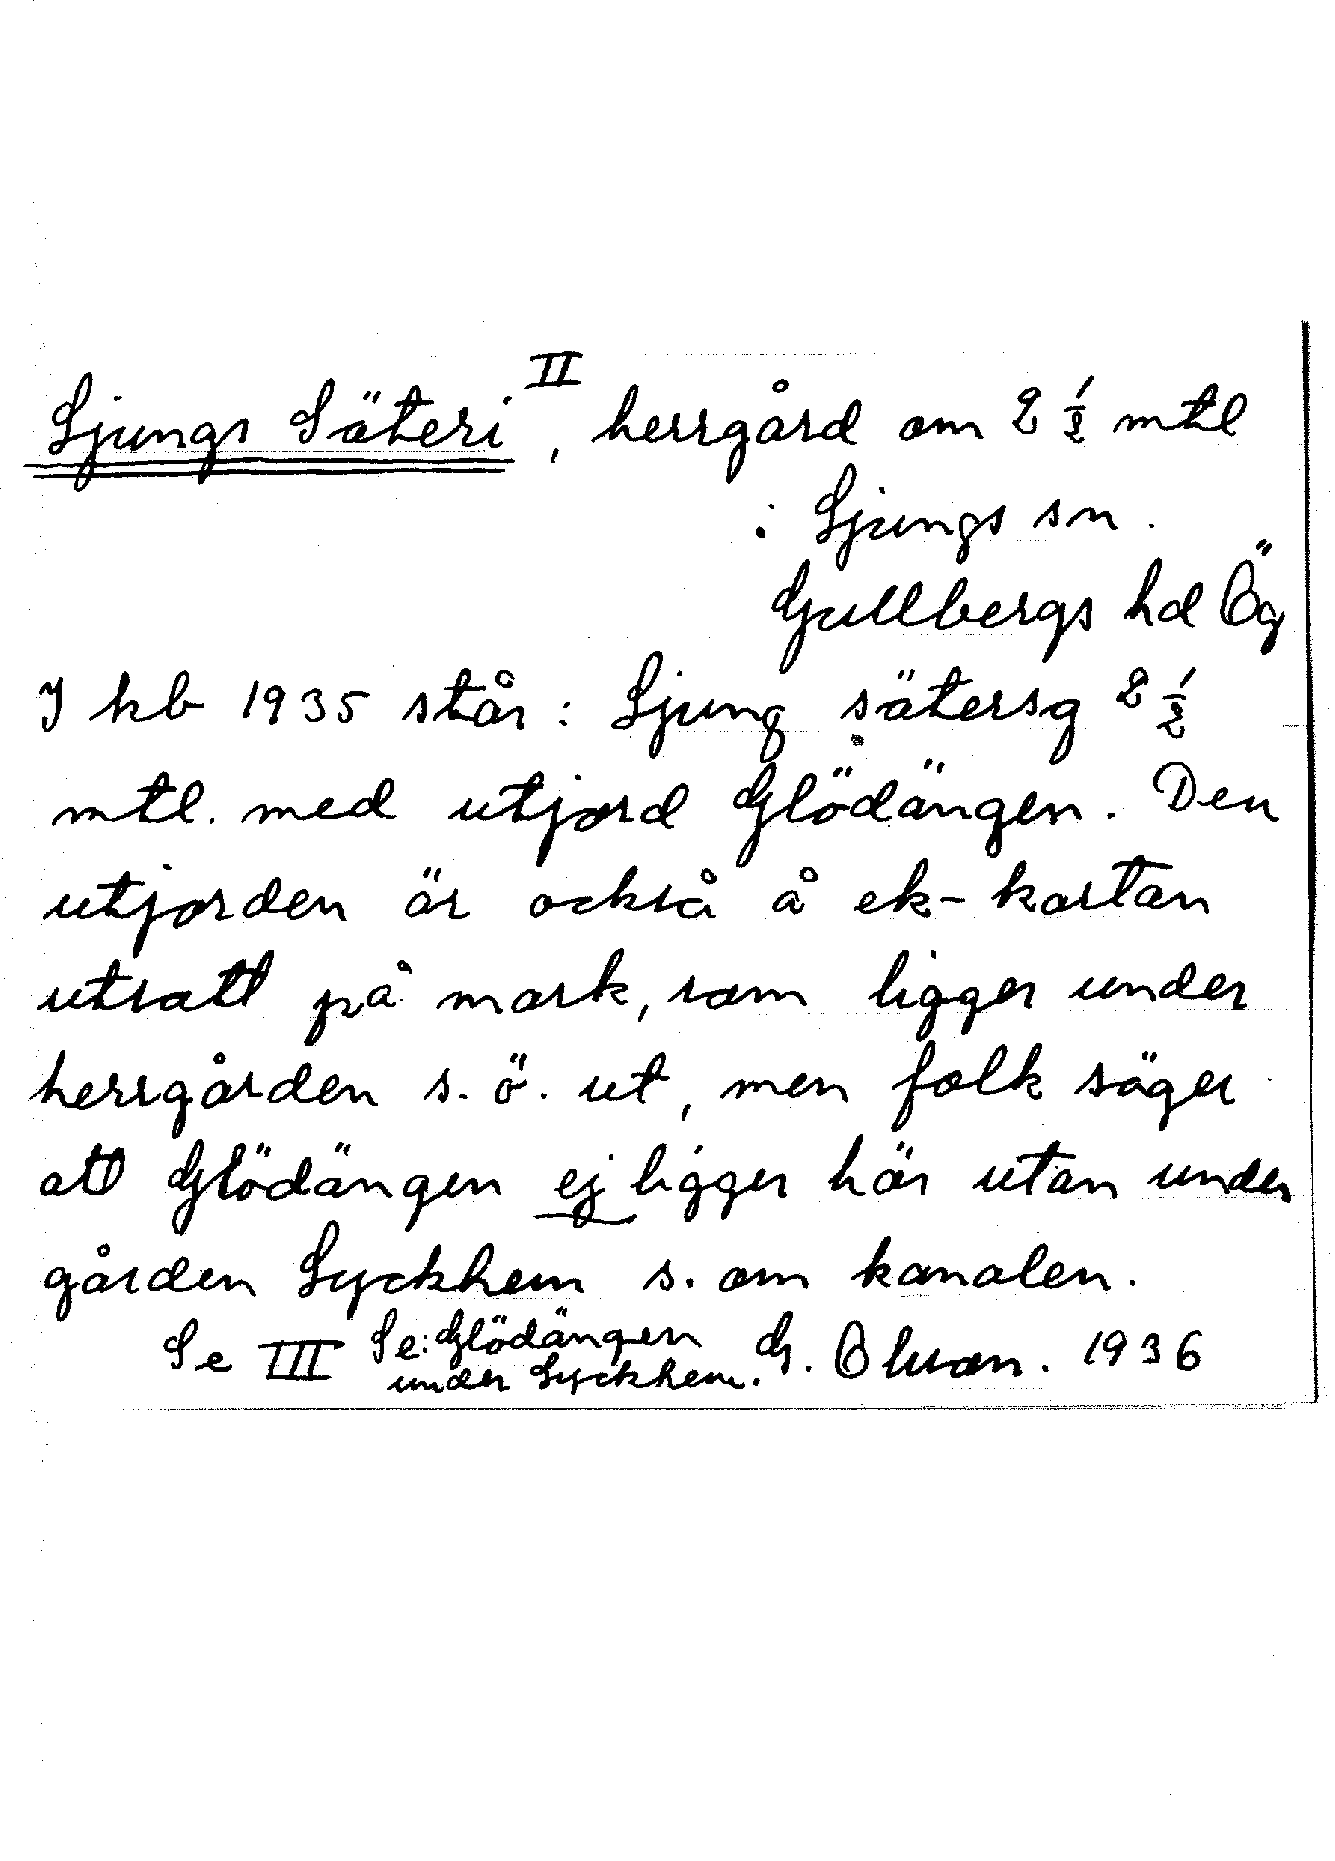 Ljungs Säteri II, herrgård om 2 1/2 mtl
i Ljungs sn.
Gullbergs hd Ög
I hb 1935 står: Ljung sätersg 2 1/2
mtl. med utjord Glödängen. Den
utjorden är också å ek-kartan
utsatt på mark, som ligger under
herrgården s.ö. ut, men folk säger
att Glödängen ej ligger här utan under
gården Lyckhem s. om kanalen.
Se III Se: Glödängen
under Lyckhem. G. Olsson. 1936